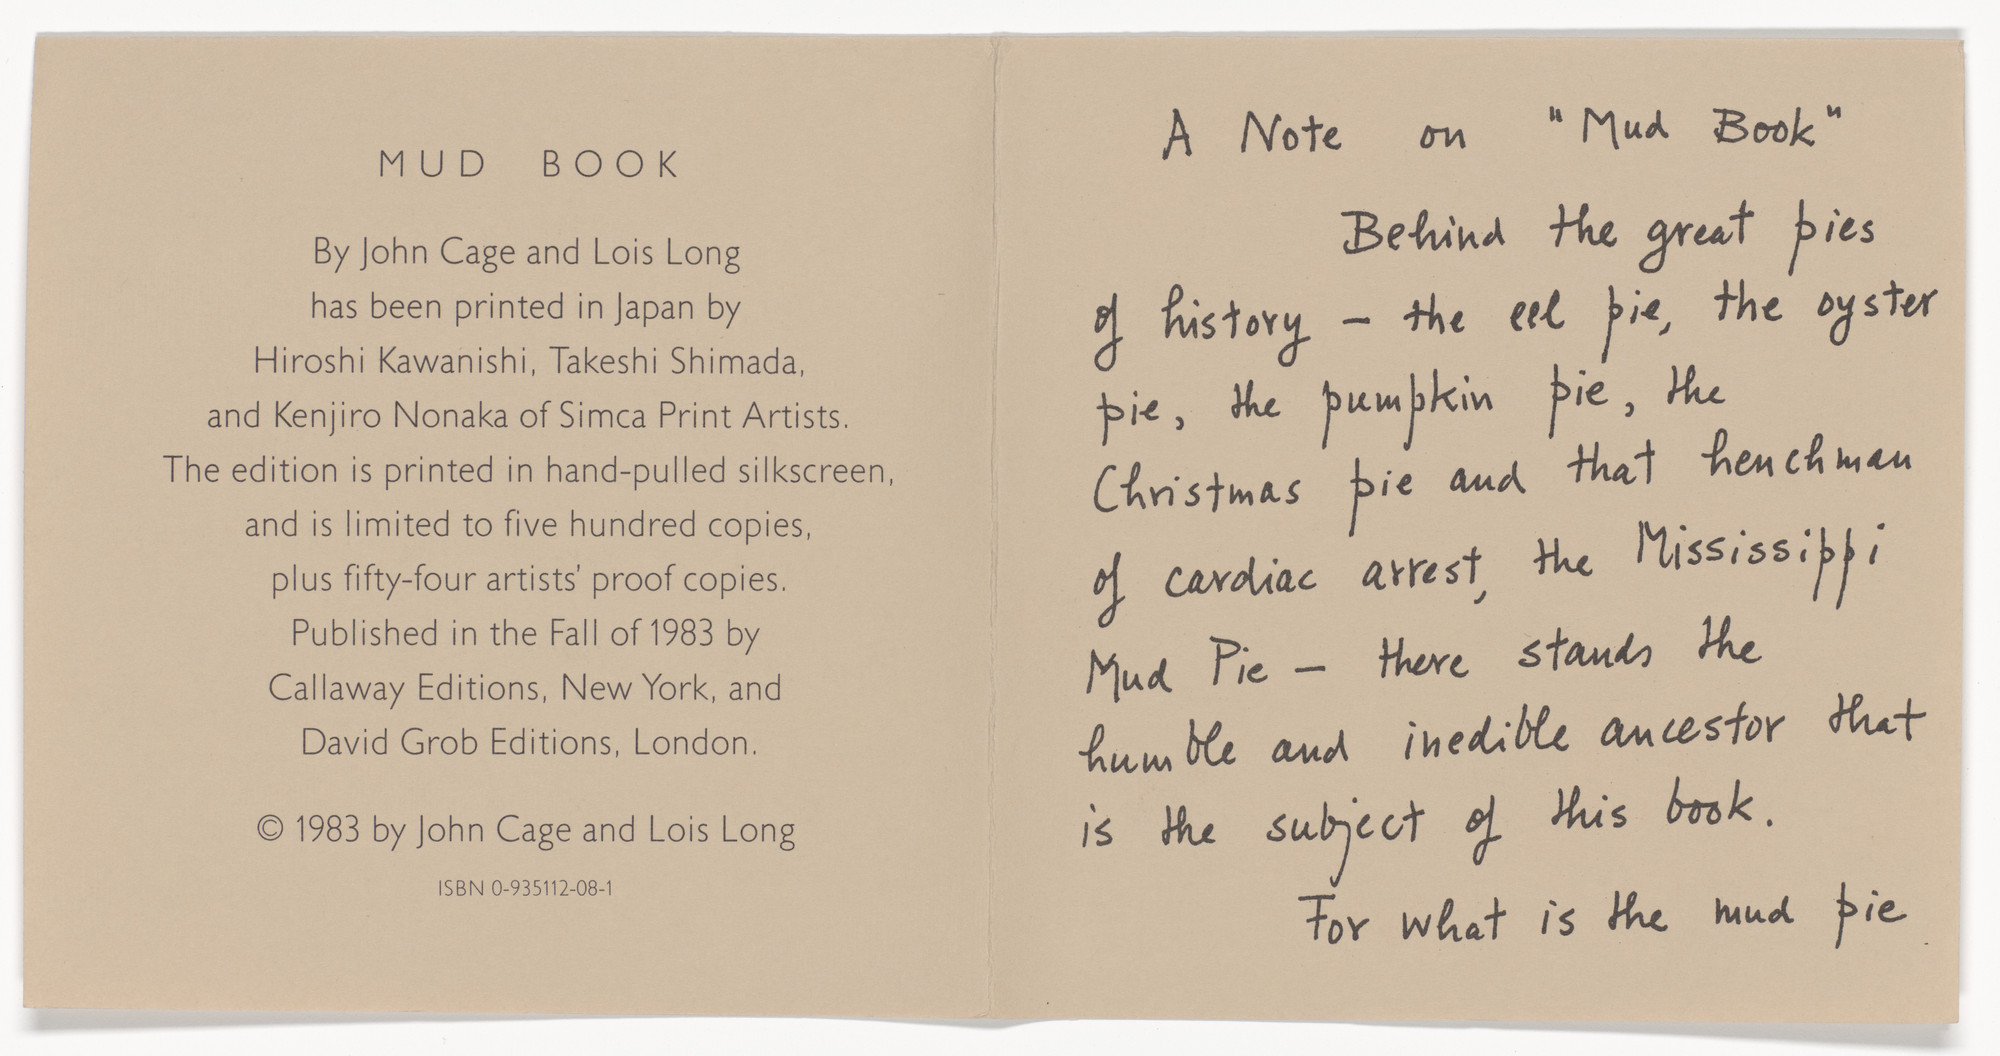 MUD BOOK
By John Cage and Lois Long
has been printed in Japan by
Hiroshi Kawanishi, Takeshi Shimada,
and Kenjiro Nonaka of Simca Print Artists.
The edition is printed in hand-pulled silkscreen,
and is limited to five hundred copies,
plus fifty-four artists' proof copies.
Published in the Fall of 1983 by
Callaway Editions, New York, and
David Grob Editions, London.
© 1983 by John Cage and Lois Long
ISBN 0-935112-08-1
A Note on "Mud Book"
Behind the great pies
of history – the eel pie, the oyster
pie, the pumpkin pie, the
Christmas pie and that henchman
of cardiac arrest, the Mississippi
Mud Pie – there stands the
humble and inedible ancestor that
is the subject of this book.
For what is the mud pie